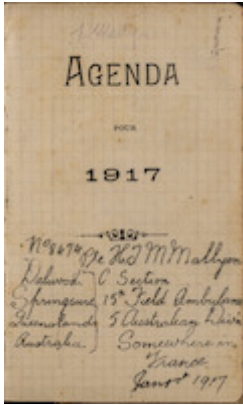 AGENDA
POUR
1917
Pte H T M Mallyon
Dalwood C Section
Springsure 15th Field Ambulance
Queensland 5 Australian Divis
Australia Somewhere in
France
1917